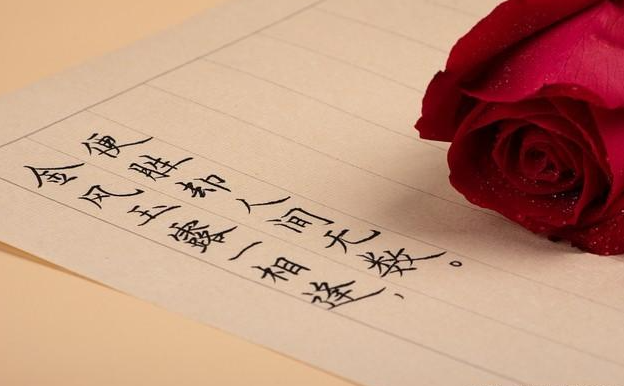 金风玉露一相逢,
便胜却人间无数。